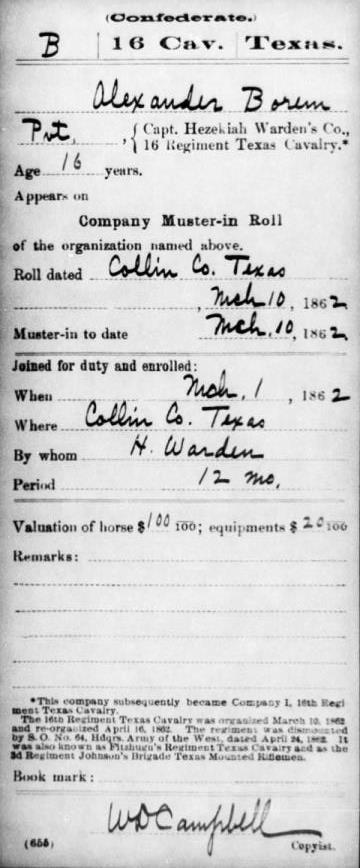 (Confederate.)
B | 16 Cav. | Texas.
Alexander Borem
Pvt, , { Capt. Hezekiah Warden's Co., 16 Regiment Texas Cavalry.*
Age 16 years.
Appears on
Company Muster-in Roll
of the organization named above.
Roll dated Collin Co. Texas
, Mch 10, 1862
Muster-in to date Mch. 10, 1862
Joined for duty and enrolled:
When Mch. 1, 1862
Where Collin Co. Texas
By whom H. Warden
Period 12 mo.
Valuation of horse $100 100; equipments $20 100
Remarks:
*This company subsequently became Company I, 16th Regi
ment Texas Cavalry.
The 16th Regiment Texas Cavalry was organized March 10, 1862
and re-organized April 16, 1862. The regiment was dismounted
by S. O. No. 64, Hdqrs. Army of the West, dated April 24, 1862. It
was also known as Fitzhugh's Regiment Texas Cavalry and as the
3d Regiment Johnson's Brigade Texas Mounted Riflemen.
Book mark:
W D Campbell
(655) Copyist.